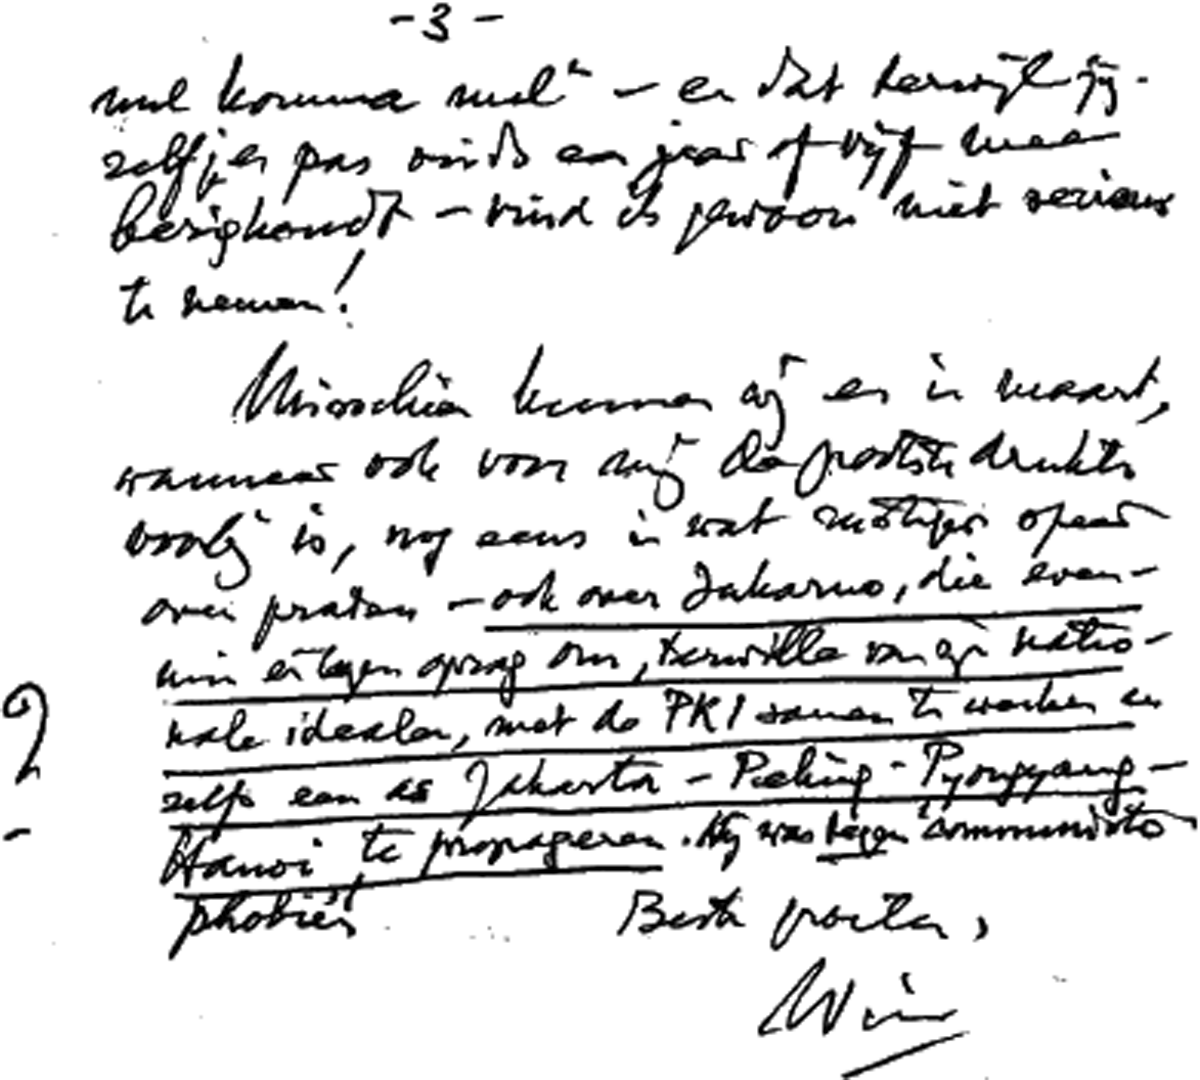 - 3 -
nul komma nul" - en dat terwijl jij-
zelf je er pas sinds een jaar of vijf mee
bezighoudt - vind ik gewoon niet serieus
te nemen!
Misschien kunnen wij er in maart,
wanneer ook voor mij de grootste drukte
voorbij is, nog eens in wat rustiger
over praten - ook over Sukarno, die even-
min er tegen opzag om, terwille van zijn natio-
nale idealen, met de PKI samen te werken en
zelfs een as Jakarta - Peking - Pyongyang -
Hanoi te propageren. Hij was tegen "communisto-
phobieën"
Beste groeten,
Wim
?